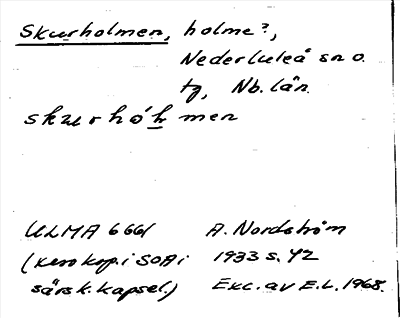 Skurholmen, holme?,
Nederluleå sn o.
tg, Nb. län.
skurhólmen
ULMA 6661 A. Nordström
(xerokop. i SOA i 1933 s. 42
särsk. kapsel) Exc. av E.L. 1968.